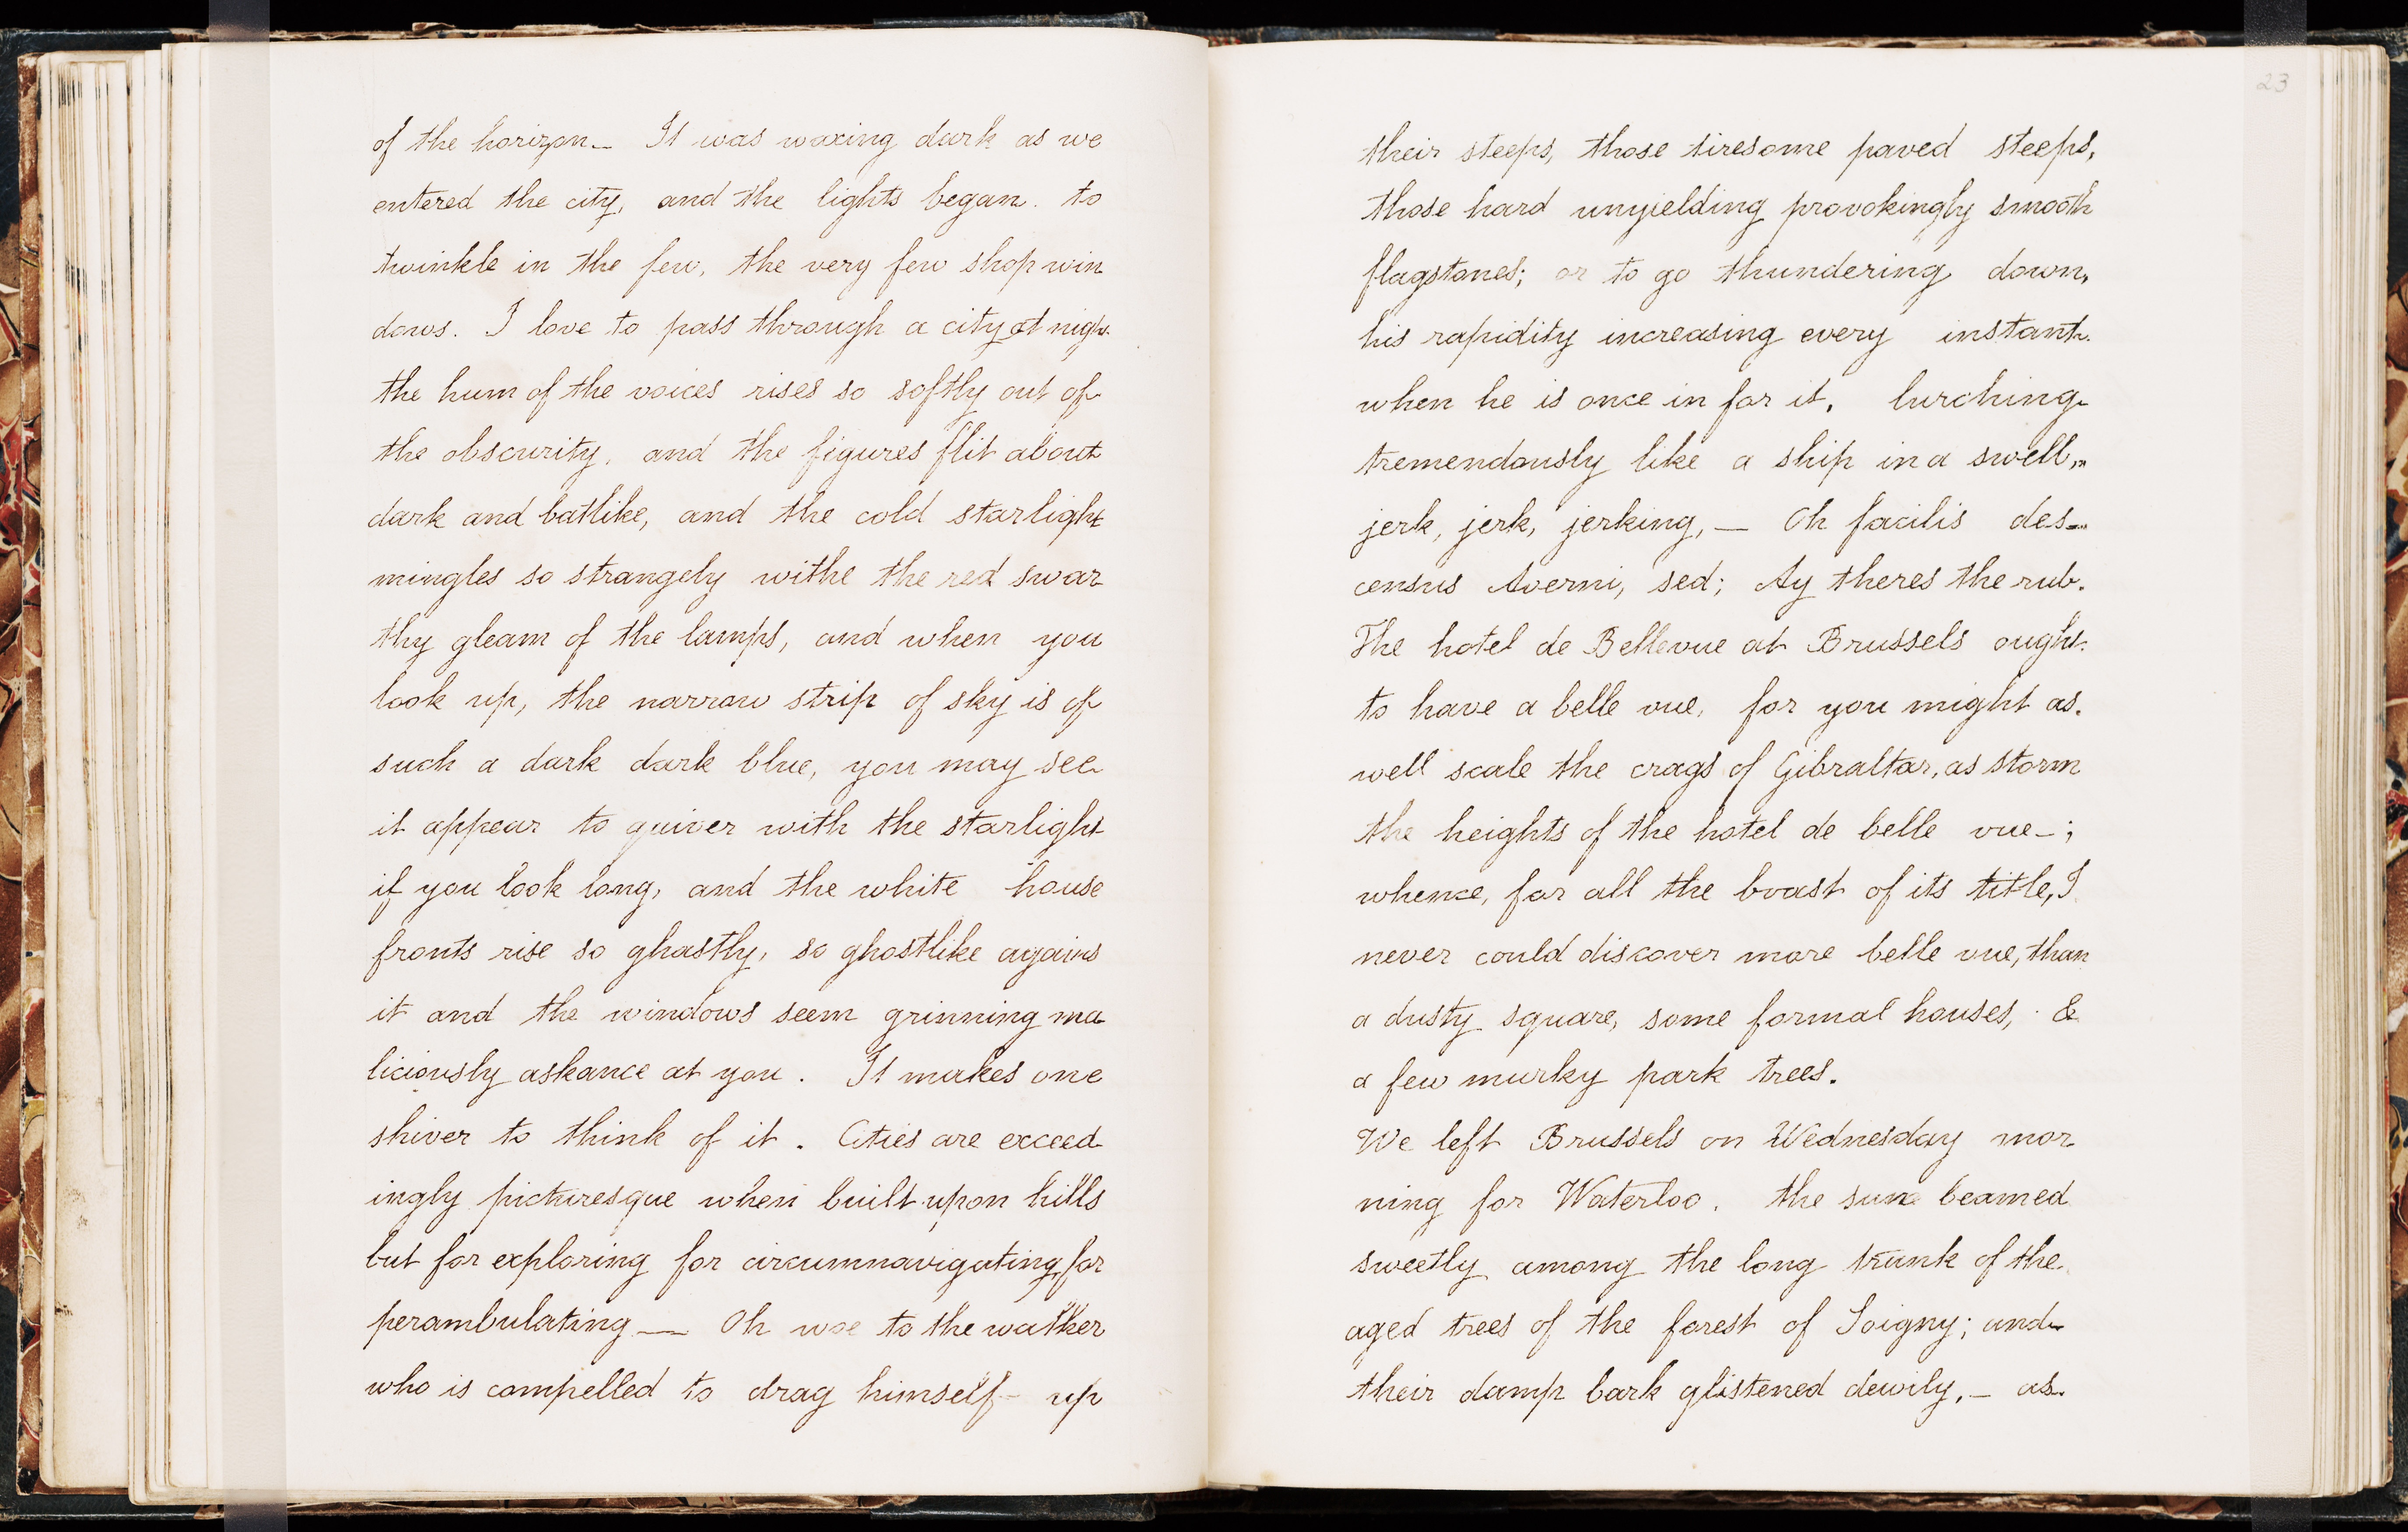 of the horizon_ It was waxing dark as we
entered the city, and the lights began. to
twinkle in the few, the very few shop win
dows. I love to pass through a city at nigh
the hum of the voices rises so softly out of
the obscurity, and the figures flit about
dark and batlike, and the cold starlight
mingles so strangely withe the red swar
thy gleam of the lamps, and when you
look up, the narrow strip of sky is of
such a dark dark blue, you may see
it appear to quiver with the starlight
if you look long, and the white house
fronts rise so ghastly, so ghostlike agains
it and the windows seem grinning ma
liciously askance at you. It makes one
shiver to think of it. Cities are exceed
ingly picturesque when built upon hills
but for exploring for circumnavigating, for
perambulating — Oh woe to the walker
who is compelled to drag himself up
23
their steeps, those tiresome paved steeps,
those hard unyielding provokingly smooth
flagstones; or to go thundering down,
his rapidity increasing every instant.
when he is once in for it, lurching
tremendously like a ship in a swell,
jerk, jerk, jerking, — Oh facilis des-
census Averni, sed; Ay theres the rub.
The hotel de Bellevue at Brussels ought
to have a belle vue, for you might as
well scale the crags of Gibraltar, as storm
the heights of the hotel de belle vue-;
whence, for all the boast of its title, I
never could discover more belle vue, than
a dusty square, some formal houses, &
a few murky park trees.
We left Brussels on Wednesday mor
ning for Waterloo. the sun beamed
sweetly among the long trunk of the
aged trees of the forest of Soigny; and
their damp bark glistened dewily, - as